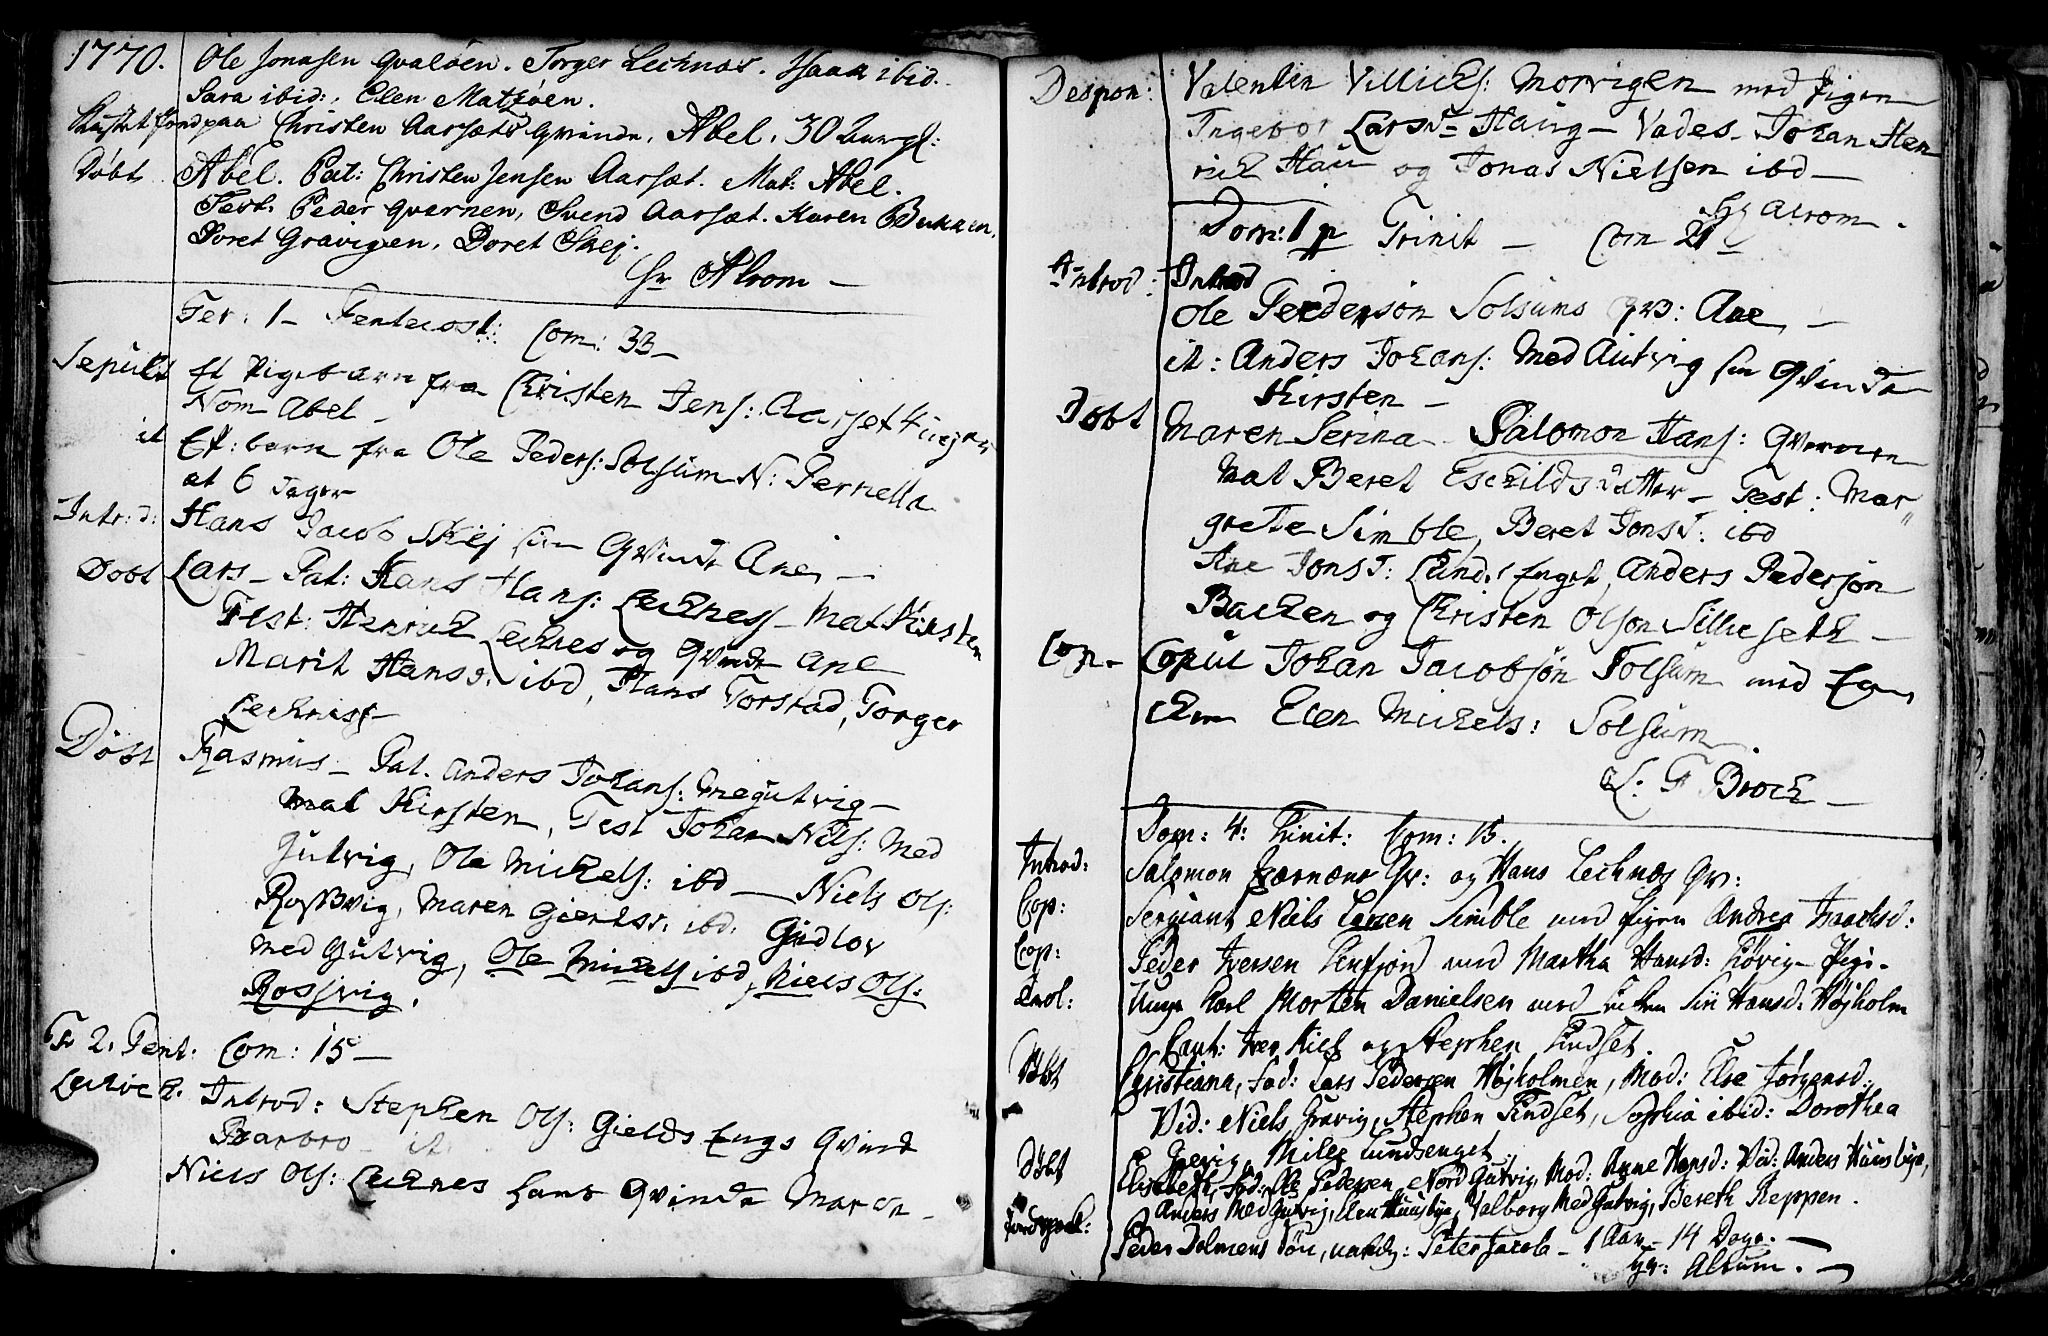 1770. Ole Jonasen Qvaløen. Torger Lechnas. Isaac ibid.
Sara ibid:, Elen Matsøen.
Kastet Jord paa Christen Aarsæts Qvinde, Abel, 30 aar gl:
Døbt Abel. Pat: Christen Jensen Aarsæt. Mat: Abel.
Test: Peder Qvernen, Svend Aarsæt. Karen Bukken,
Doret Gravigen, Doret Skej.
hr Alrom –
Fer. 1 – Pentecost: Com: 33 –
Sepult Et Pigebarn fra Christen Jens: Aarset 4 uger
Nom Abel –
it Et: barn fra Ole Peders: Solsum N: Pernella
at 6 Dager
Introd: Hans Jacob Skej sin Qvinde Ane –
Døbt Lars – Pat: Hans Hans: Lechness – Mat Kirsten
Test: Henrich Lechnes og Qvinde Ane
Marit Hansd. ibd, Hans Torstad, Torger
Lechness –
Døbt Rasmus – Pat. Anders Johans: Megutvig –
Mat Kirsten, Test Johan Nils: Med
gutvig, Ole Michels: ibd – Niels Ols:
Rossvig, Maren Giertsd. ibd. Gudlov
Med Gutvig, Ole Michels ibd, Niels Ols:
Rossvig.
Fr 2. Pent. Com: 15 –
Lechvech. Introd: Stephen Ols: Gields Engs Qvinde
Barbro – it.
Niels Ols: Lechnes hans Qvinde Maren –
Despon: Valentin Villichs: Morvigen med Pigen
Ingebor Larsd= Haug – Vades – Johan Hen
rich Hau og Jonas Nielsen ibd –
Hr Alrom.
Dom: 1 p Trinit – Com 21
Introd: Introd
Ole Pederson Solsums Qv: Ane –
it: Anders Johans: Med Gutvig sin Qvinde
Kirsten –
Døbt Maren Serina – Salomon Hans: Qvernen
Mat Beret Eschilds datter – Test: Mar
grete Simble, Beret Jonsd: ibd
Ane Jonsd: Lunds Enget, Anders Pedersøn
Backen og Christen Olson Silleseth –
Cop – Copul Johan Jacobsøn Solsum med En
chen Elen Michels: Solsum
L: F Broch –
Dom: 4: Trinit: Com: 15.
Introd: Salomon Qværnens Qv: og Hans Lechnæs Qv:
Cop: Sergiant Niels Larsen Simble med Pigen Andrea Isachsd:
Cop: Peder Iversen med Martha Hansd: Pige.
Trol: Unge Karl Morten Danielsen med Enken Siri Hansd: Højholm
Caut: Iver Kiel og Stephen Findset
Døbt Christiana, Fad: Lars Pedersen Højholmen, Mod: Else Jørgensd:
Vid: Niels Gravig, Stephen Findset, Sophia ibid: Dorothea
Grevig, Milla Lundsenget
Døbt Elisabeth, Fad: Ole Pedersen Nord Gutvig, Mod: Anne Hansd: Vid: Anders Huusbye,
Anders Med Gutvig, Elen Huusbye, Valborg Med Gutvig, Bereth Reppen.
Jordspaak: Peder Dolmens Søn, navnlig: Peter Jacob – 1 Aar – 14 Dage. –
Hr: Alrum. –